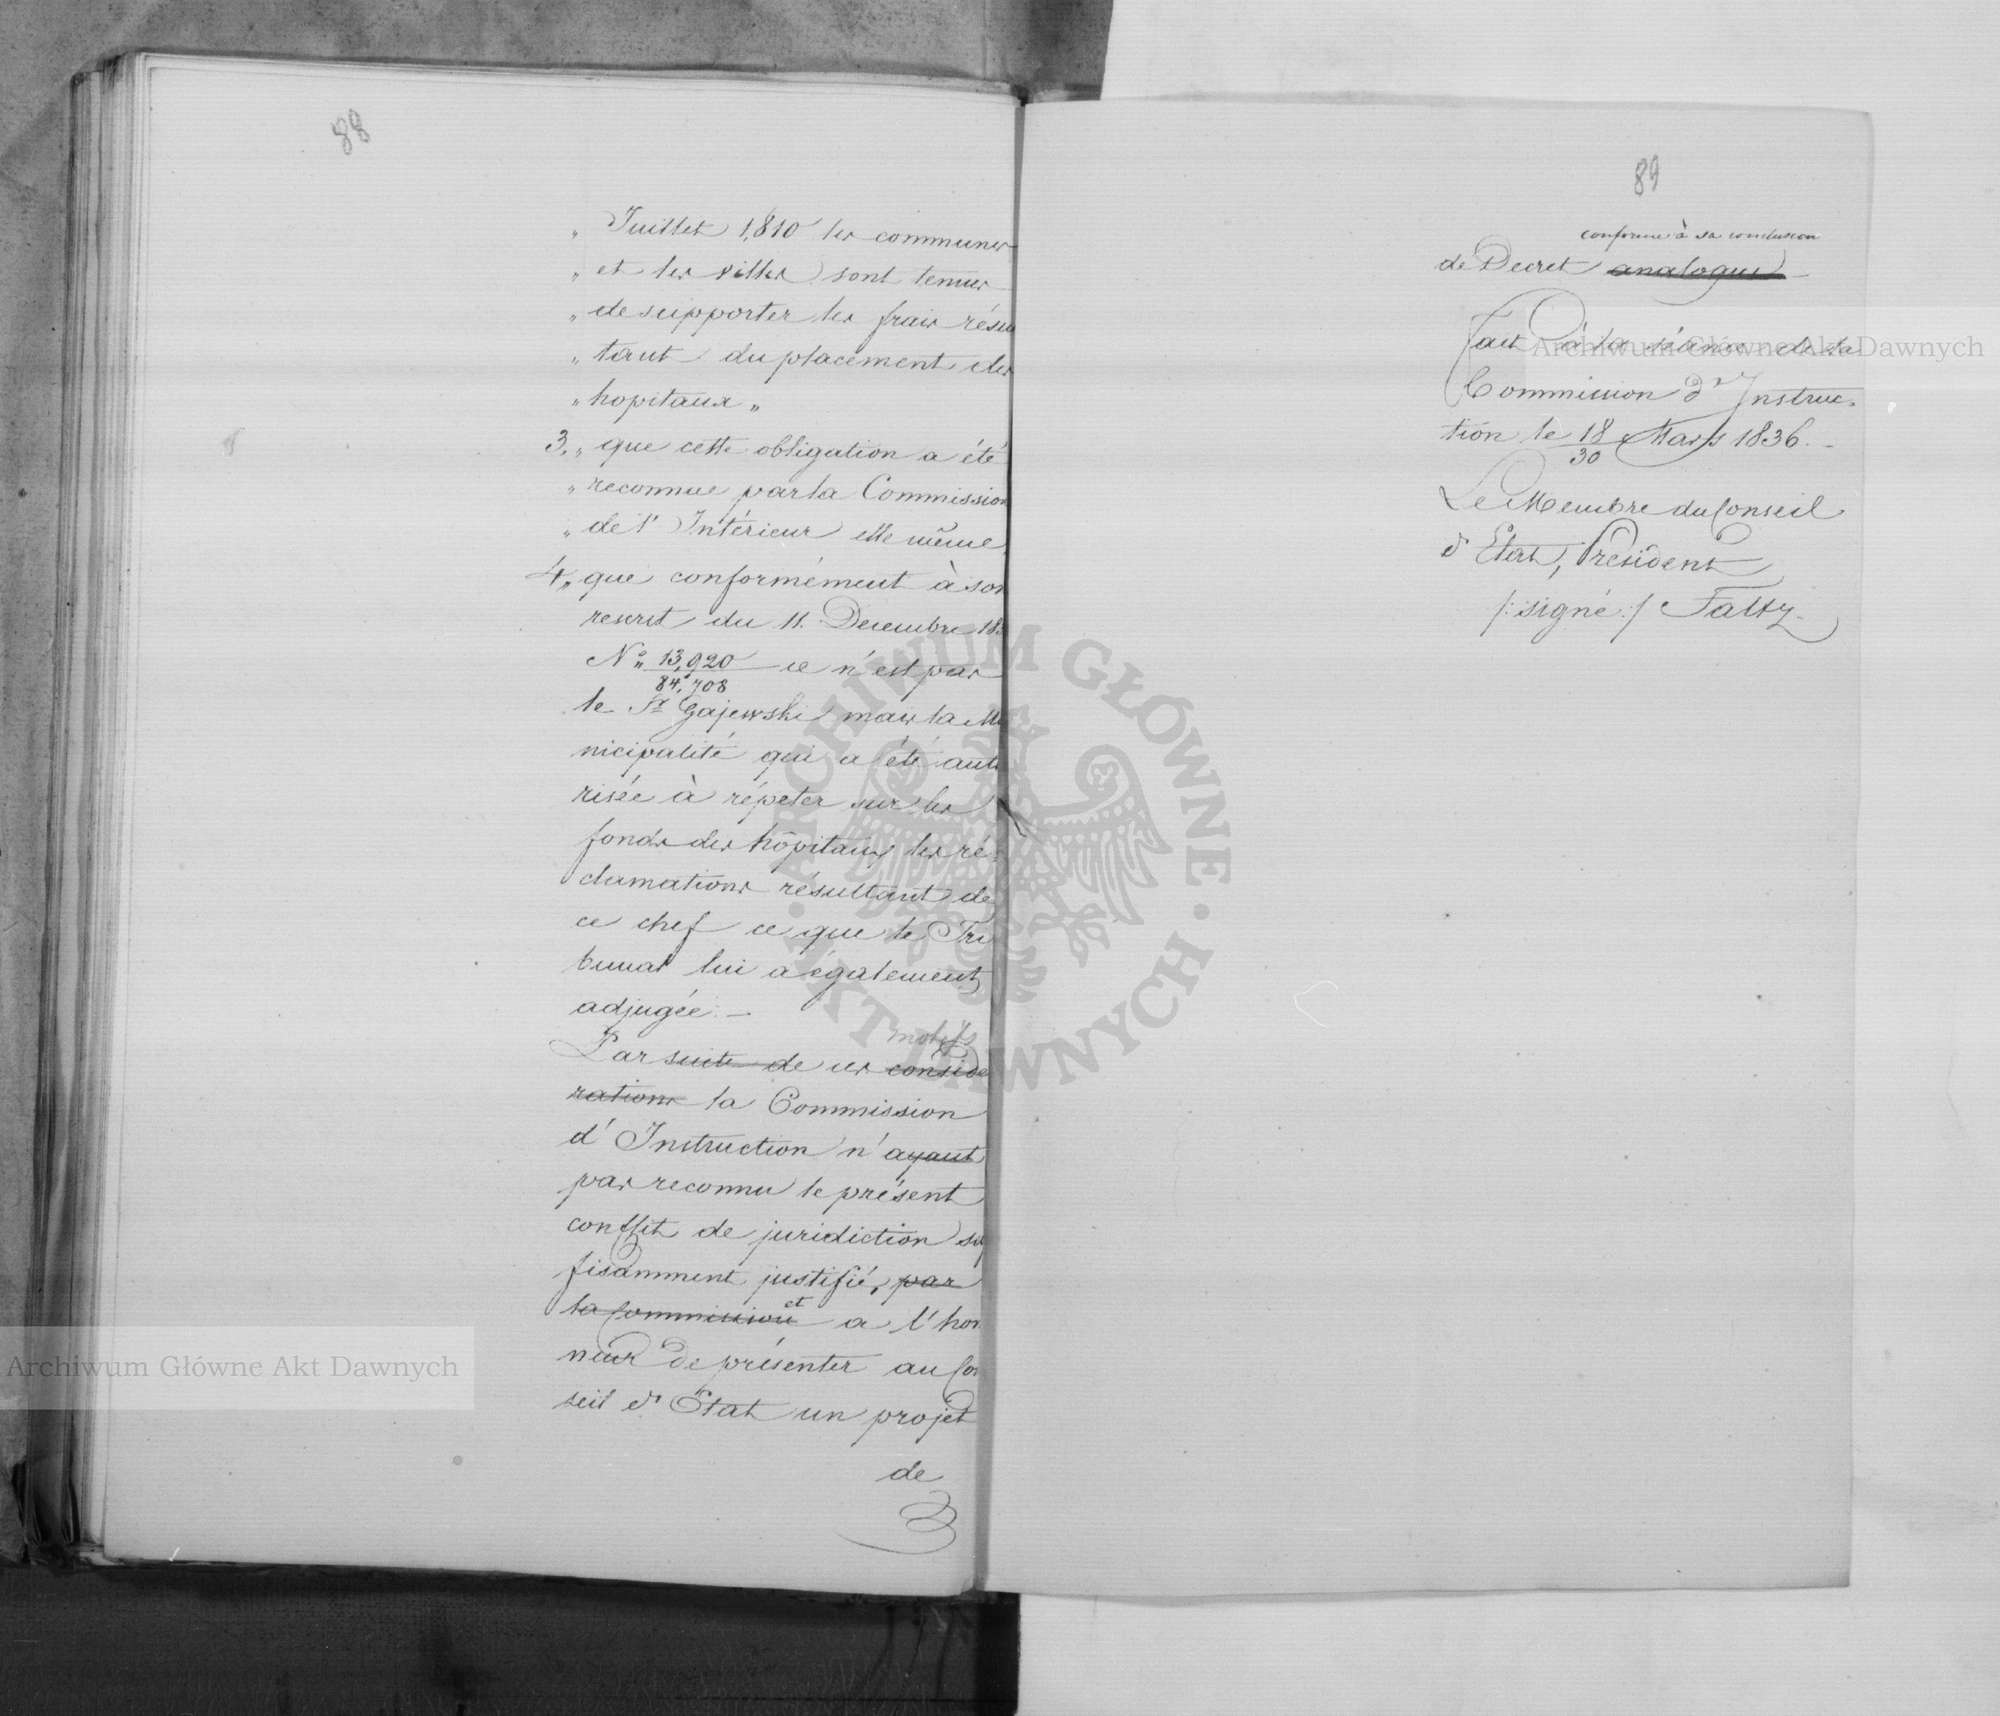 88
„ Juillet 1,810 les communes
„ et les villes sont tenues
„ de supporter les frais résul
„ tant du placement des
„ hopitaux „
3, „ que cette obligation a été
„ reconnue par la Commission
„ de l' Intérieur elle même
4, „ que conformément à son
rescrit du 11. Decembre 18
No „ 13,920
84,708 ce n'est pas
le Sr Gajewski mais la Mu
nicipalité qui a été auto
risée à répeter sur les
fonds des hôpitaux les ré-
clamations résultant de
ce chef ce que le Tri
bunal lui a également
adjugée. —
motifs
Par suite de ces conside
rations la Commission
d' Instruction n' ayant
pas reconnu le présent
conflit de juridiction suf
fisamment justifié, par
la Commission et a l' hon
neur de présenter au Con
seil d' Etat un projet
de
89
conforme à sa conclusion
de Decret analogue
Fait à la séance de la
Commission d' Instruc-
tion le 18/30 Mars 1836. -
Le Membre du Conseil
d' Etat, President
/: signé :/ Faltz
Archiwum Główne Akt Dawnych
Archiwum Główne Akt Dawnych
ARCHIWUM GŁÓWNE · AKT DAWNYCH ·